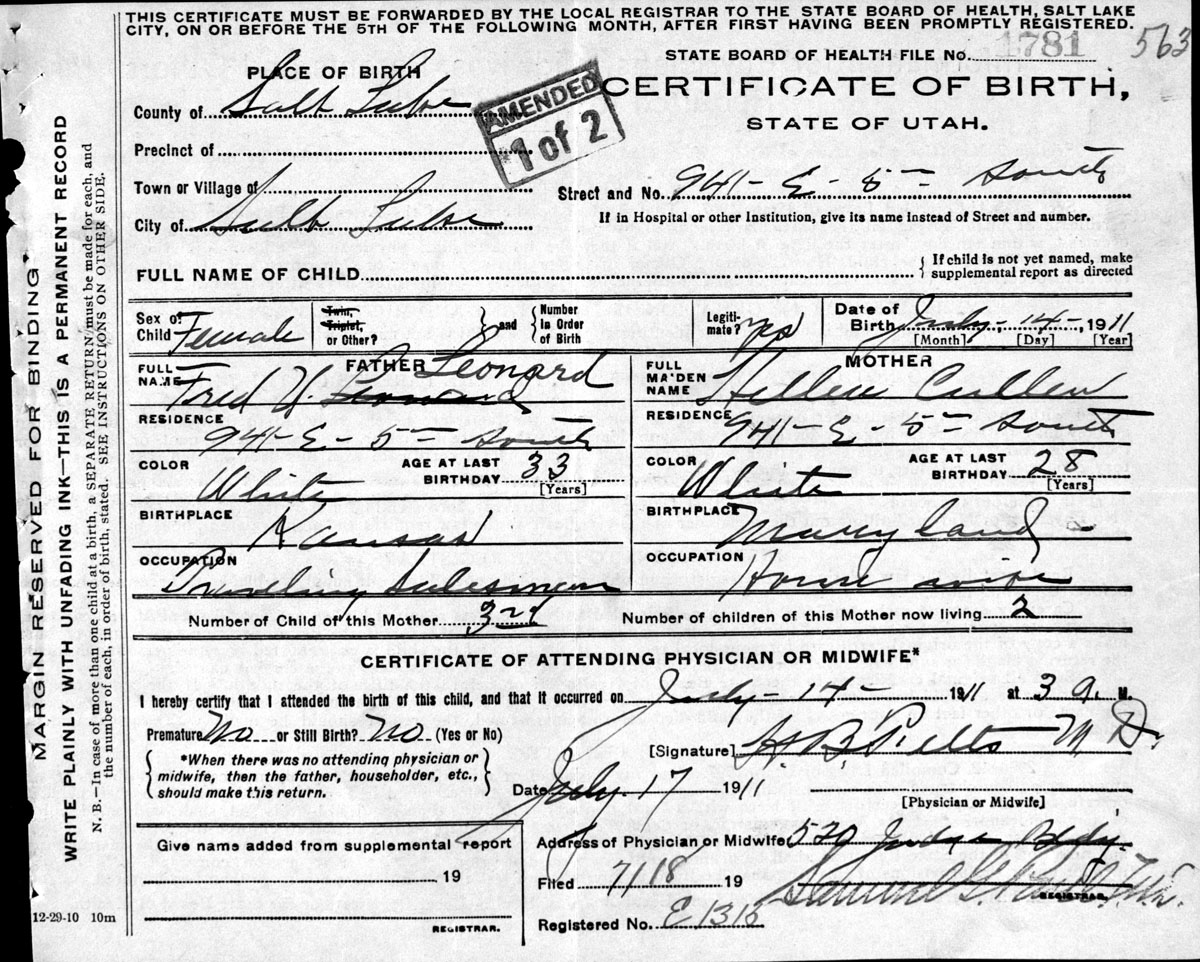 THIS CERTIFICATE MUST BE FORWARDED BY THE LOCAL REGISTRAR TO THE STATE BOARD OF HEALTH, SALT LAKE
CITY, ON OR BEFORE THE 5TH OF THE FOLLOWING MONTH, AFTER FIRST HAVING BEEN PROMPTLY REGISTERED.
STATE BOARD OF HEALTH FILE No. 1781 563
PLACE OF BIRTH
CERTIFICATE OF BIRTH,
STATE OF UTAH.
AMENDED
1 of 2
County of Salt Lake
Precinct of
Town or Village of
Street and No. 941-E-5th South
City of Salt Lake
If in Hospital or other Institution, give its name instead of Street and number.
FULL NAME OF CHILD
If child is not yet named, make
supplemental report as directed
Sex of Child Female
Twin, Triplet, or Other?
and
Number In Order of Birth
Legitimate? Yes
Date of Birth July 14, 1911
[Month] [Day] [Year]
FATHER
FULL NAME Fred H. Leonard Leonard
MOTHER
FULL MAIDEN NAME Hellen Cullen
RESIDENCE 941-E-5th South
RESIDENCE 941-E-5th South
COLOR White
AGE AT LAST BIRTHDAY 33 [Years]
COLOR White
AGE AT LAST BIRTHDAY 28 [Years]
BIRTHPLACE Kansas
BIRTHPLACE Maryland
OCCUPATION Traveling Salesman
OCCUPATION House wife
Number of Child of this Mother 3rd
Number of children of this Mother now living 2
CERTIFICATE OF ATTENDING PHYSICIAN OR MIDWIFE*
I hereby certify that I attended the birth of this child, and that it occurred on July-14- 1911 at 3 a. M.
Premature No or Still Birth? No (Yes or No)
[Signature] M.D.
*When there was no attending physician or
midwife, then the father, householder, etc.,
should make this return.
Date July 17 1911
[Physician or Midwife]
Give name added from supplemental report
19
REGISTRAR.
Address of Physician or Midwife 520 Judge Bldg.
Filed 7/18 19
Samuel G. Paul
REGISTRAR.
Registered No. E1313
12-29-10 10m
MARGIN RESERVED FOR BINDING
WRITE PLAINLY WITH UNFADING INK—THIS IS A PERMANENT RECORD
N. B.—In case of more than one child at a birth, a SEPARATE RETURN must be made for each, and
the number of each, in order of birth, stated. SEE INSTRUCTIONS ON OTHER SIDE.